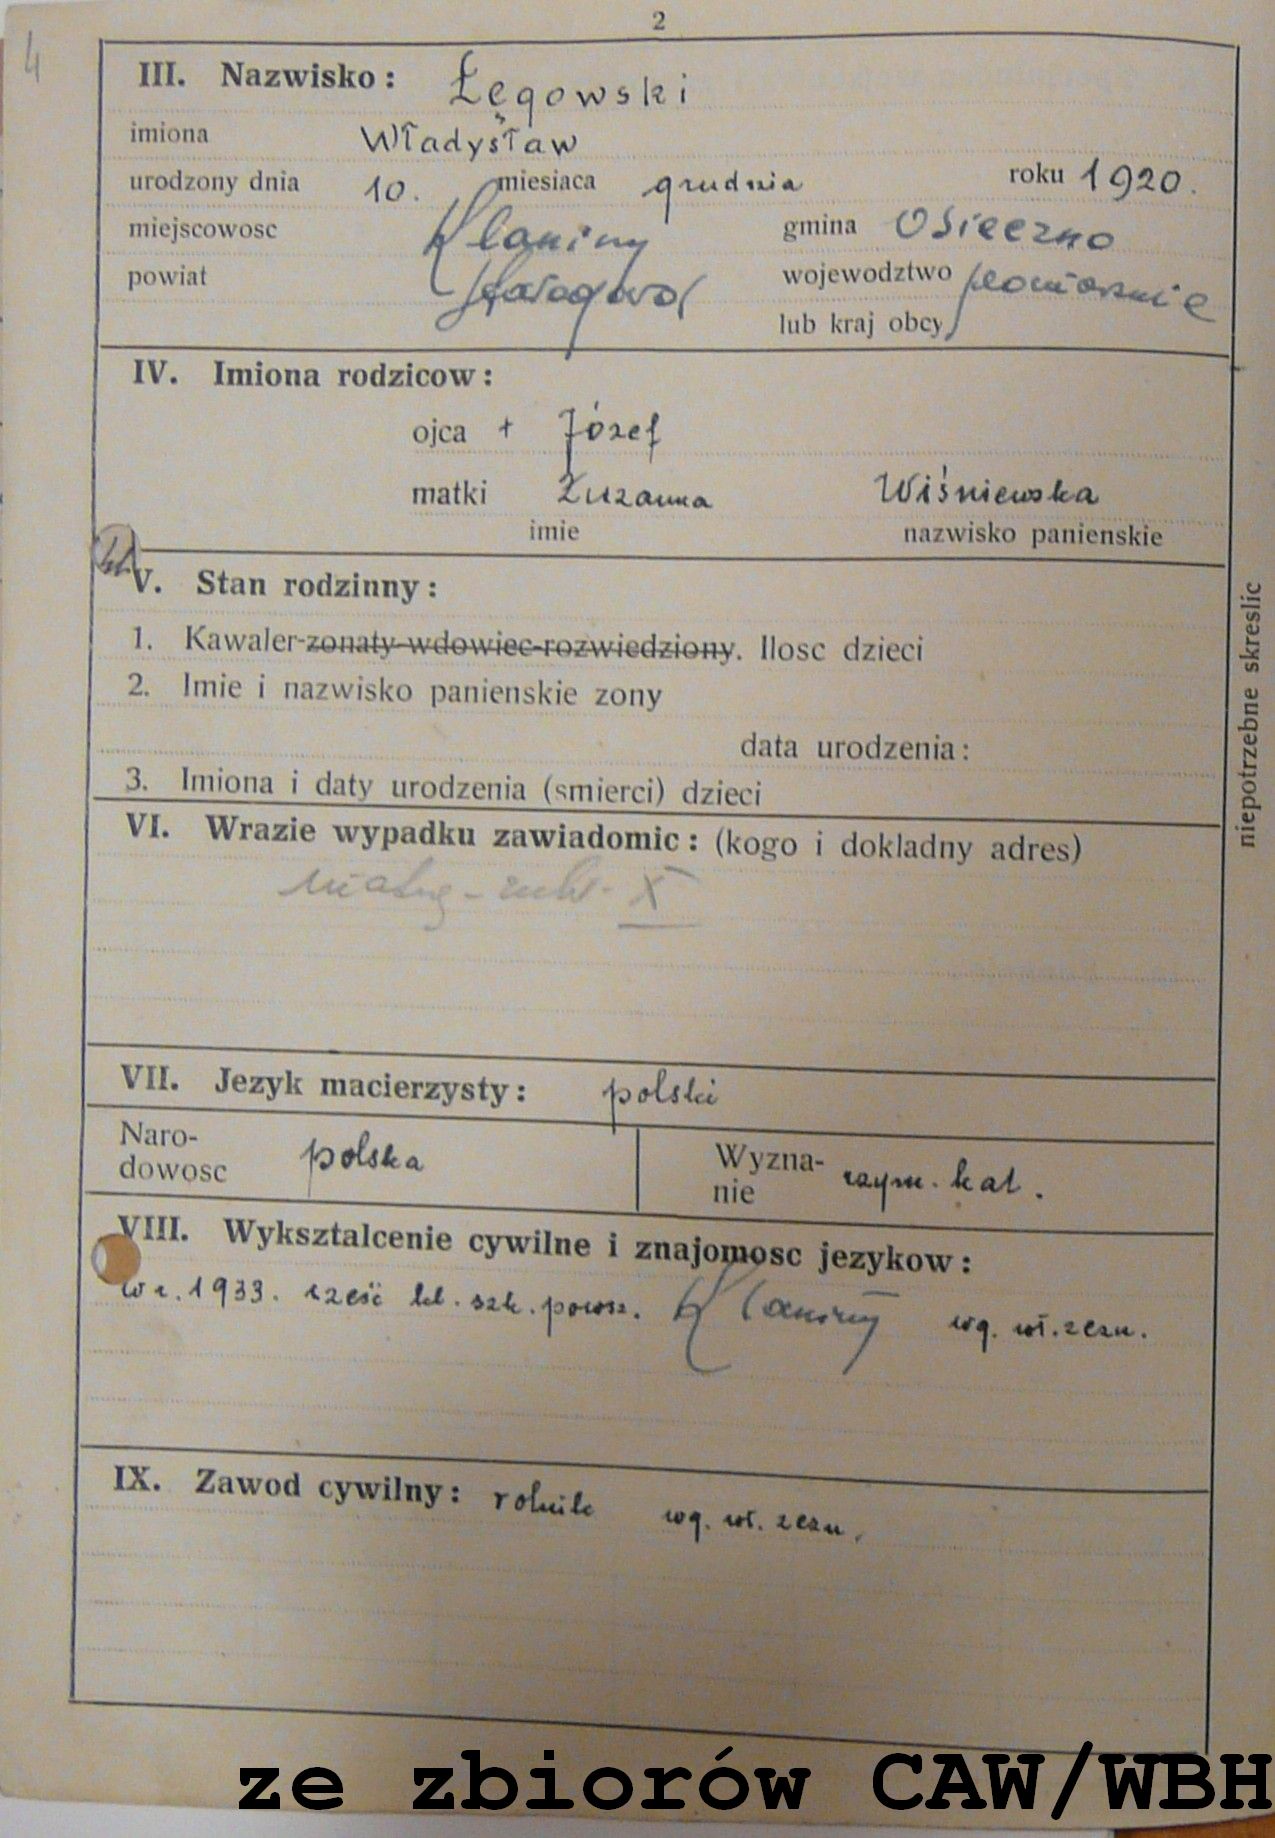 2
4
III. Nazwisko: Łęgowski
imiona Władysław
urodzony dnia 10. miesiaca grudnia roku 1920.
miejscowosc Klaniny gmina Osieczno
powiat wojewodztwo
lub kraj obcy
IV. Imiona rodzicow:
ojca + Józef
matki Zuzanna Wiśniewska
imie nazwisko panienskie
V. Stan rodzinny:
1. Kawaler-zonaty-wdowiec-rozwiedziony. Ilosc dzieci
2. Imie i nazwisko panienskie zony
data urodzenia:
3. Imiona i daty urodzenia (smierci) dzieci
niepotrzebne skreslic
VI. Wrazie wypadku zawiadomic: (kogo i dokladny adres)
X
VII. Jezyk macierzysty: polski
Naro-
dowosc polska
Wyzna-
nie rzym. kat.
VIII. Wyksztalcenie cywilne i znajomosc jezykow:
w r. 1933. sześć kl. szk. powsz. Klaniny wg. wł. zezn.
IX. Zawod cywilny: rolnik wg. wł. zezn.
ze zbiorów CAW/WBH